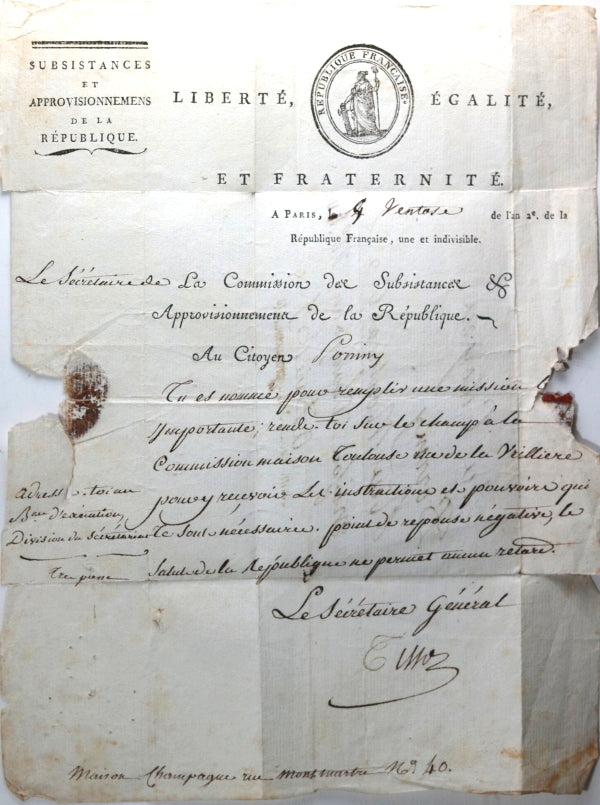 SUBSISTANCES
ET
APPROVISIONNEMENS
DE LA
RÉPUBLIQUE.
LIBERTÉ, ÉGALITÉ,
RÉPUBLIQUE FRANÇAISE.
ET FRATERNITÉ.
A PARIS, le 4 Ventose de l'an 2e. de la
République Française, une et indivisible.
Le Sécrétaire de La Commission des Subsistances &
Approvisionnemens de la République.
Au Citoyen
Tu es nommé pour remplir une mission
Importante; rends-toi sur le champ à la
Commission maison Toulouse rue de la Vrilliere
pour y recevoir les instructions et pouvoirs qui
te sont nécessaires. point de reponse négative, le
Salut de la République ne permet aucun retard.
Adresse-toi au
Bau d'exécution,
Division du Sécrétariat
Tres pressé
Le Sécrétaire Général
Tissot
Maison Champagne rue montmartre No. 40.